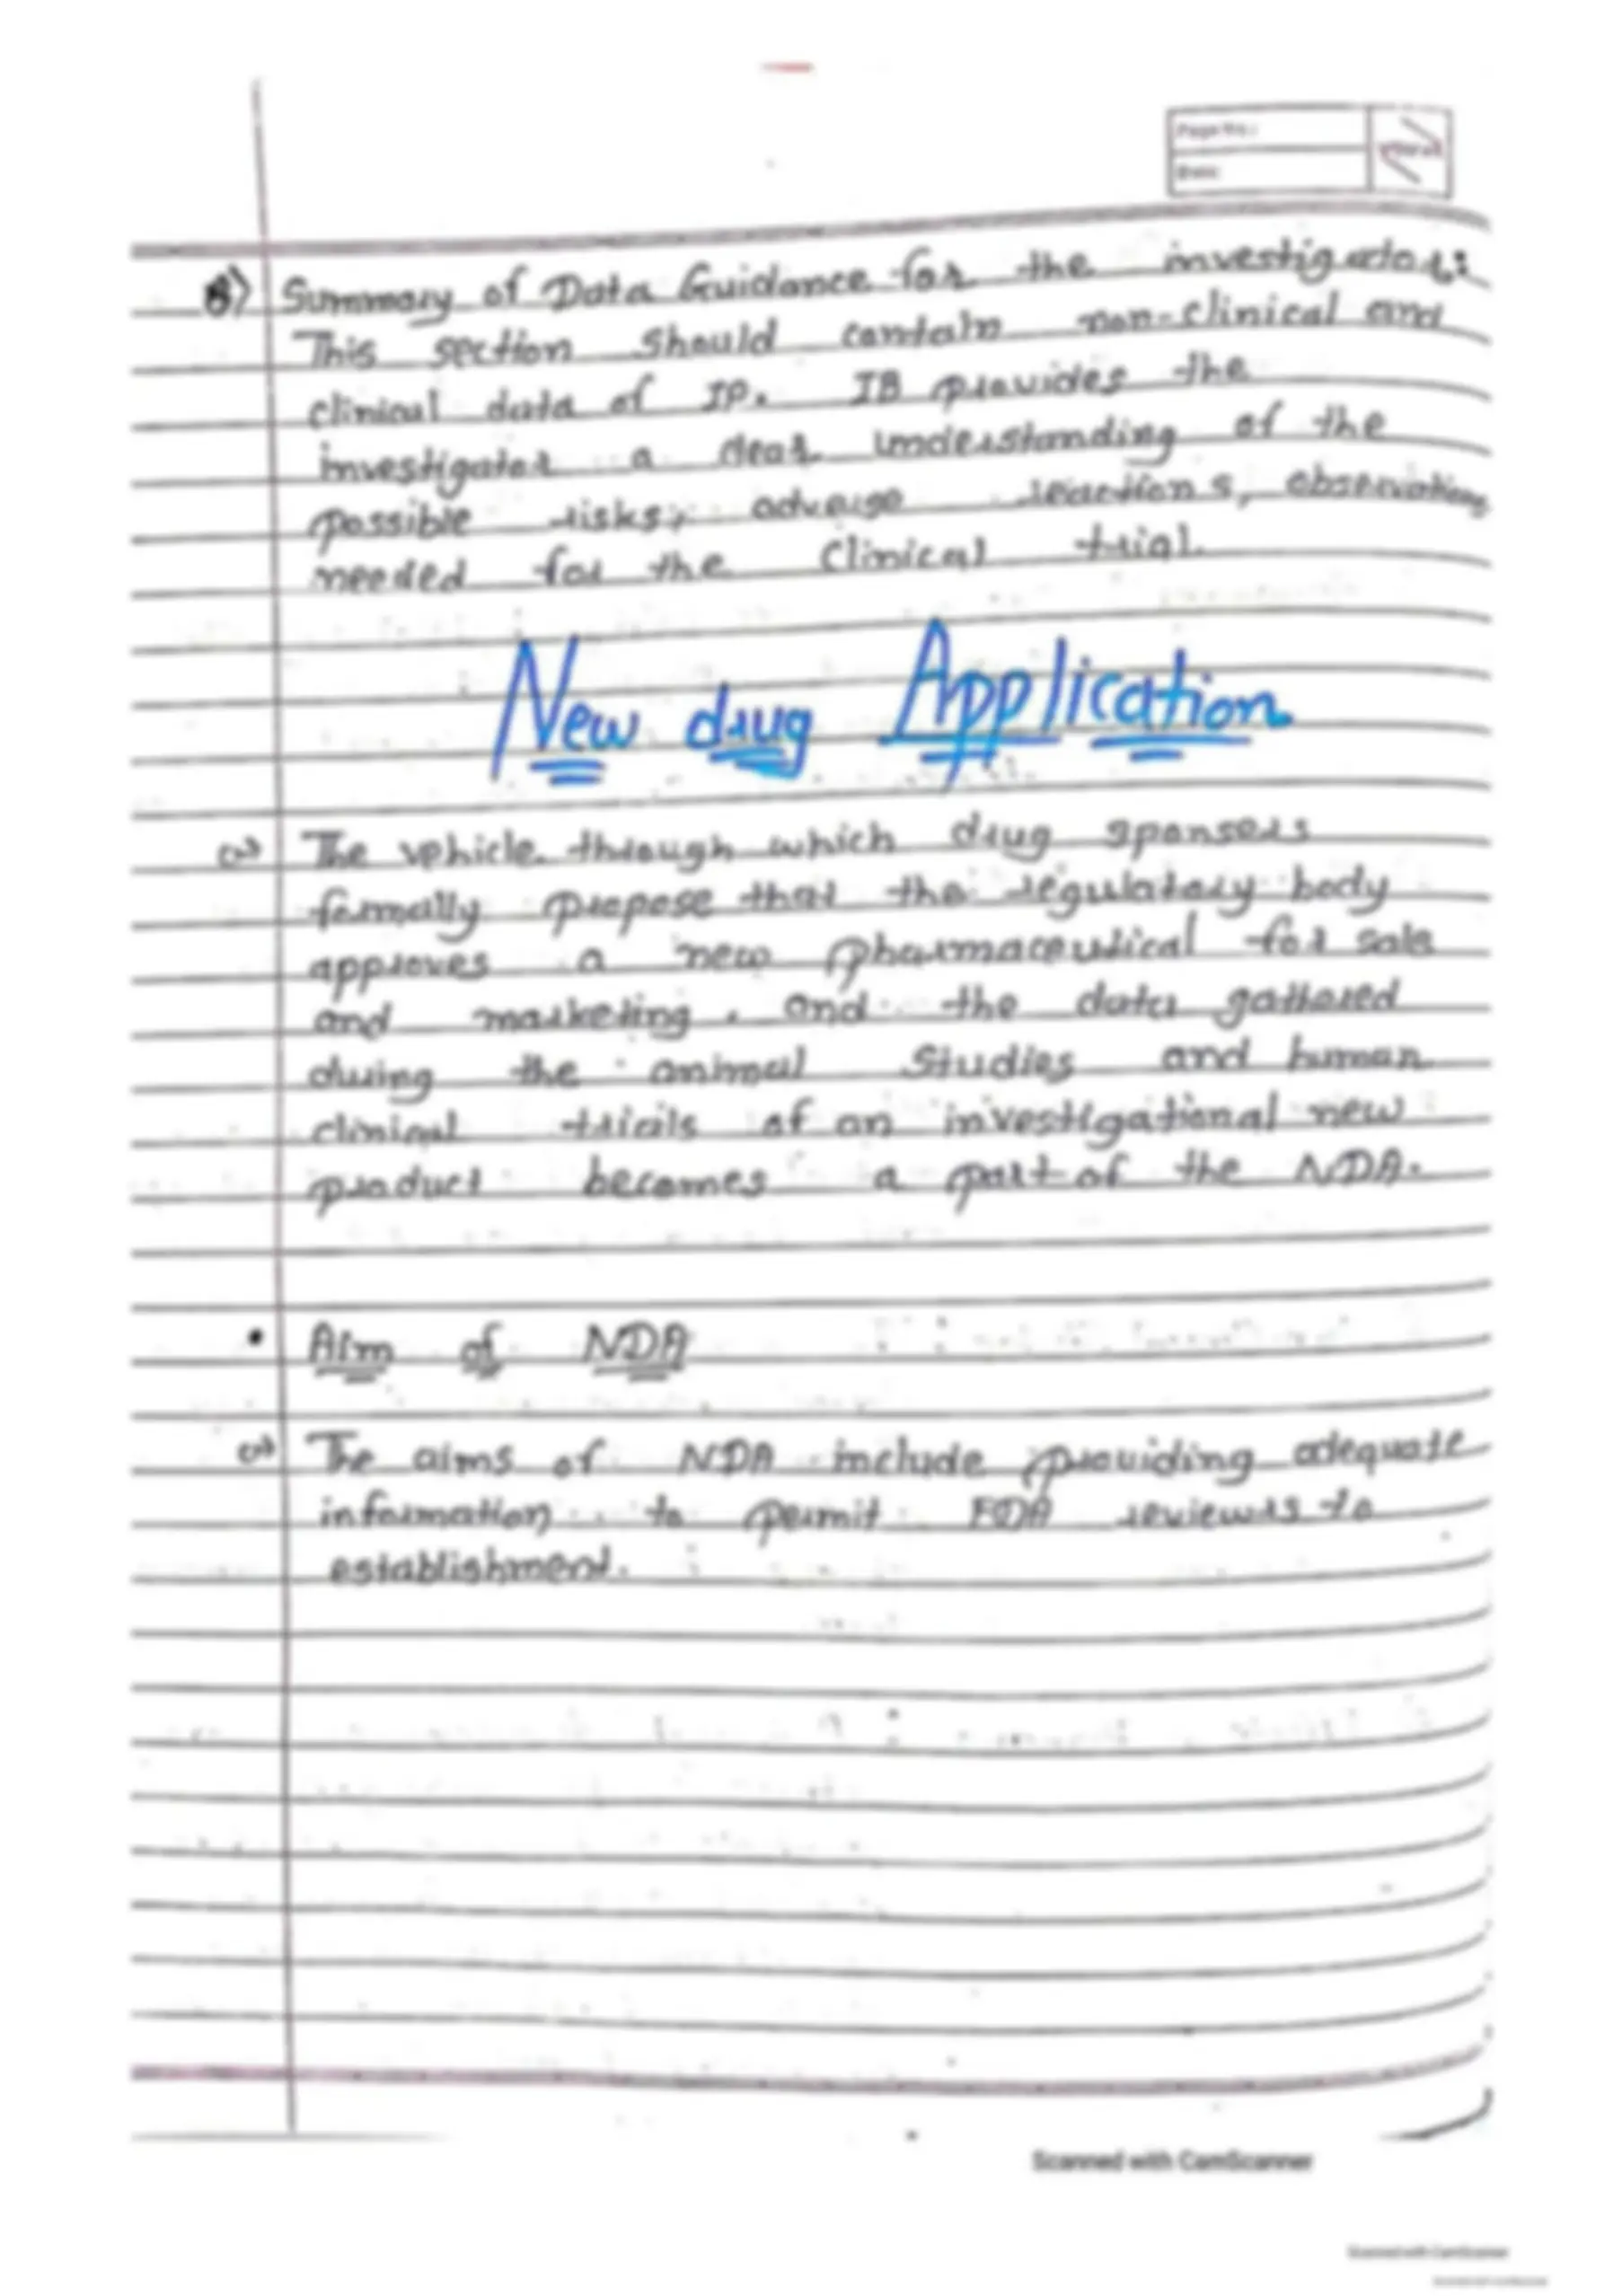 Page No.:
Date:
8) Summary of Data Guidance for the investigator:
This section should contain non-clinical and
clinical data of IP. IB provides the
investigator a clear understanding of the
possible risks, adverse reactions, observations
needed for the Clinical trial.
New drug Application
The vehicle through which drug sponsers
formally propose that the regulatory body
approves a new pharmaceutical for sale
and marketing, and the data gathered
during the animal Studies and human
clinical trials of an investigational new
product becomes a part of the NDA.
• Aim of NDA
The aims of NDA include providing adequate
information to permit FDA reviewers to
establishment.
Scanned with CamScanner
Scanned with CamScanner